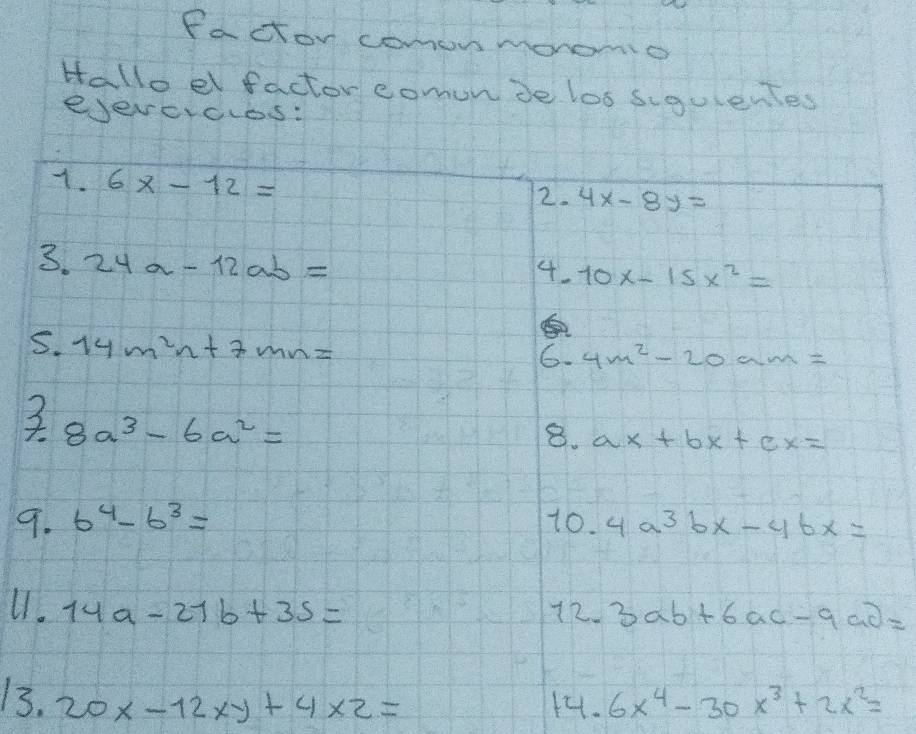 Factor comun monomio
Hallo el factor comun de los siguientes
ejercicios:
1. 6x - 12 =
2. 4x - 8y =
3. 24a - 12ab =
4. 10x - 15x² =
5. 14m²n + 7mn =
6. 4m² - 20am =
7. 8a³ - 6a² =
8. ax + bx + cx =
9. b⁴ - b³ =
10. 4a³bx - 4bx =
11. 14a - 21b + 35 =
12. 3ab + 6ac - 9ad =
13. 20x - 12xy + 4xz =
14. 6x⁴ - 30x³ + 2x² =